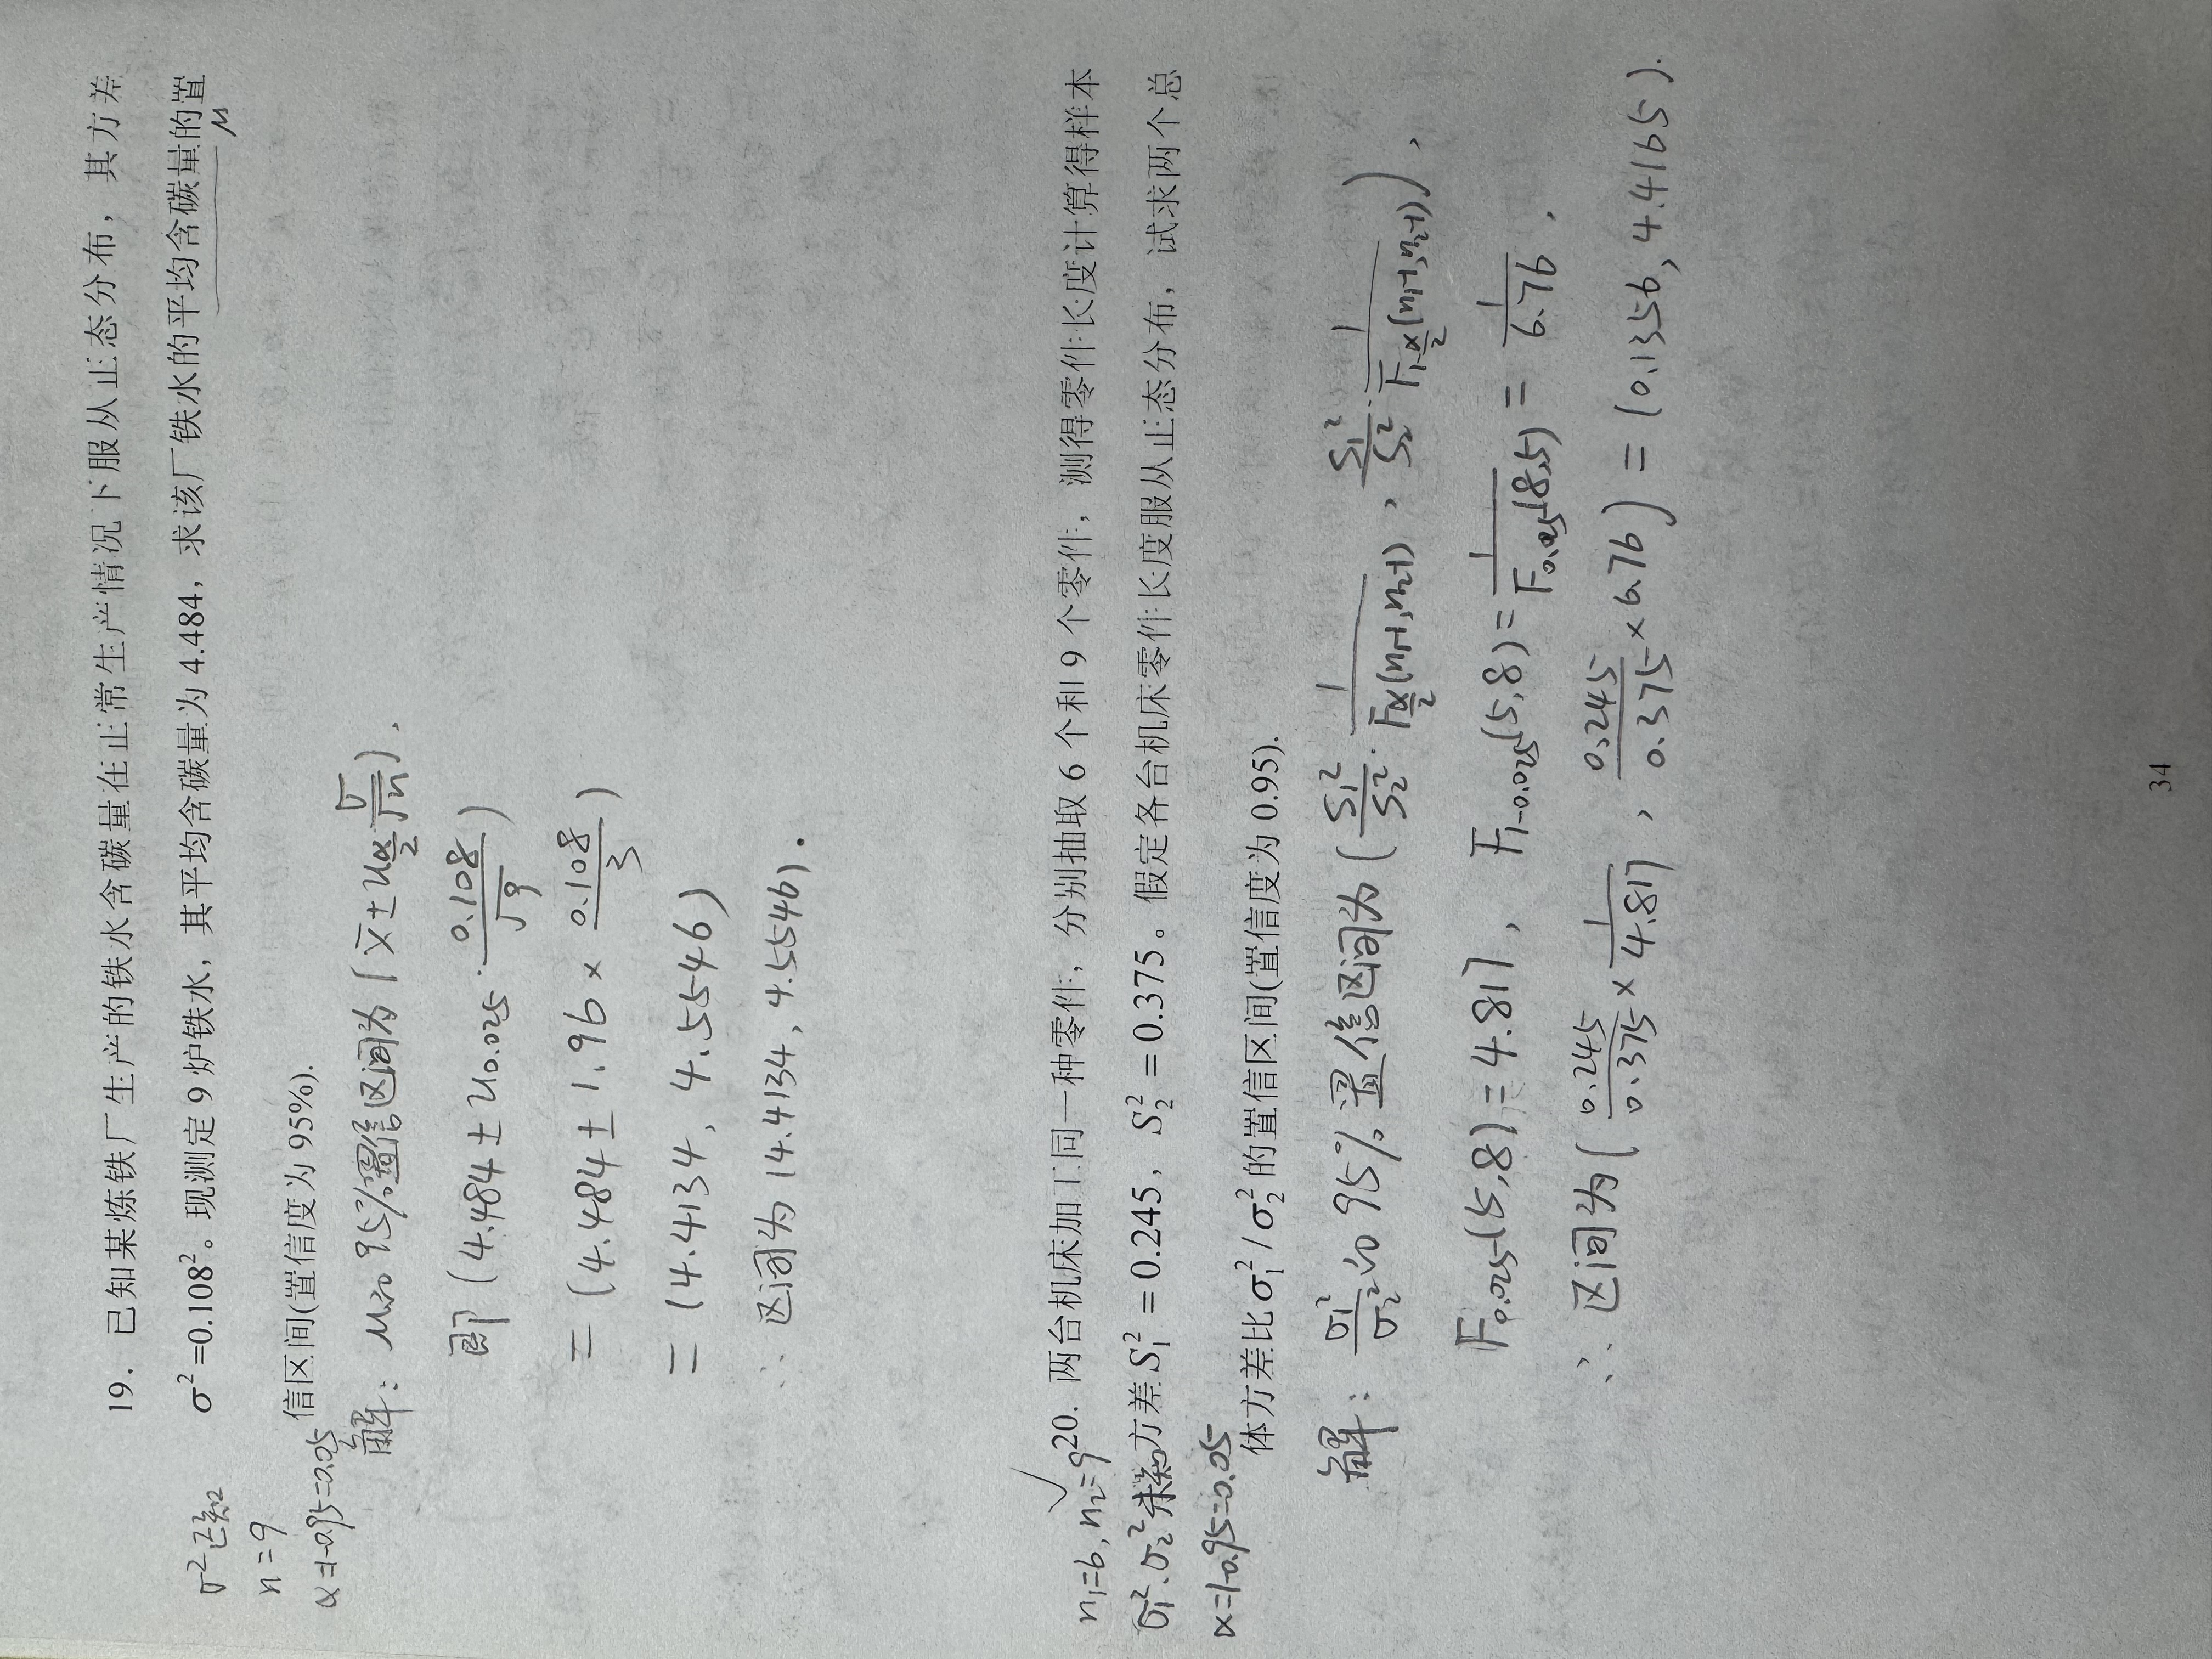 19. 已知某炼铁厂生产的铁水含碳量在正常生产情况下服从正态分布，其方差
σ²=0.108²。现测定9炉铁水，其平均含碳量为4.484，求该厂铁水的平均含碳量的置
μ
信区间(置信度为95%).
σ²已知
n=9
α=1-0.95=0.05
解：μ的95%置信区间为(x̄±u_{α/2}·σ/√n),
即(4.484±u_{0.025}·0.108/√9)
=(4.484±1.96×0.108/3)
=(4.4134, 4.5546)
∴区间为(4.4134, 4.5546).
✓
20. 两台机床加工同一种零件，分别抽取6个和9个零件，测得零件长度计算得样本
方差S₁²=0.245，S₂²=0.375。假定各台机床零件长度服从正态分布，试求两个总
体方差比σ₁²/σ₂²的置信区间(置信度为0.95).
n₁=6, n₂=9
σ₁².σ₂²未知
α=1-0.95=0.05
解：σ₁²/σ₂²的95%置信区间为(S₁²/S₂²·1/F_{α/2}(n₁-1,n₂-1), S₁²/S₂²·1/F_{1-α/2}(n₁-1,n₂-1)),
F_{0.025}(5,8)=4.817, F_{1-0.025}(5,8)=1/F_{0.025}(8,5)=1/6.76.
∴区间为(0.245/0.375×1/4.817, 0.245/0.375×6.76)=(0.1356, 4.4165).
34